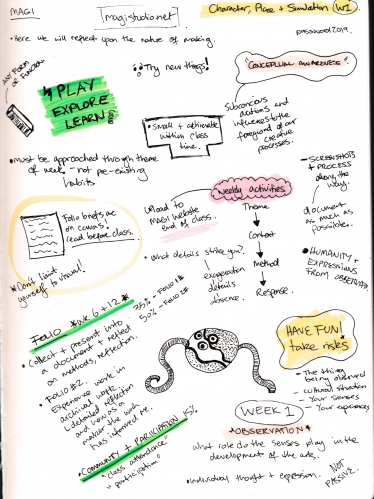 MAGI
magistudio.net
Character, Place + Simulation W1
• Here we will reflect upon the nature of making.
password 2019.
Try new things!
CONCEPTUAL AWARENESS
ART FORM
OR FUNCTION
PLAY
EXPLORE
LEARN
• Small + actionable
within class
time.
subconcious
actions and
influences to the
foreground of our
creative
processes.
• must be approached through theme
of week - not pre-existing
habits
- SCREENSHOTS
+ PROCESS
along the
way.
document
as much as
possible.
• HUMANITY +
EXPRESSIONS
FROM
Folio briefs are
on canvas.
read before class.
Weekly activities
Upload to
MAGI website
end of class.
Theme
Context
Method
Response.
• What details strike you?
exaggeration
details
absence.
* Don't limit
yourself to visual!
FOLIO * WK 6 + 12 *
• Collect + present into
a document + reflect
on methods, reflection.
35% - FOLIO 1
50% - FOLIO 2
• FOLIO #2:
Experience work in
archival work +
detailed reflection
and how as a
maker the work
has informed me.
• COMMUNITY + PARTICIPATION 15%
" class attendance"
" participation"
HAVE FUN!
take risks
- The thing
being observed
- cultural situation
- Your senses
- Your experiences
WEEK 1
* OBSERVATION *
what role do the senses play in the
development of the arts.
• Individual thought + expression.
NOT
PASSIVE.